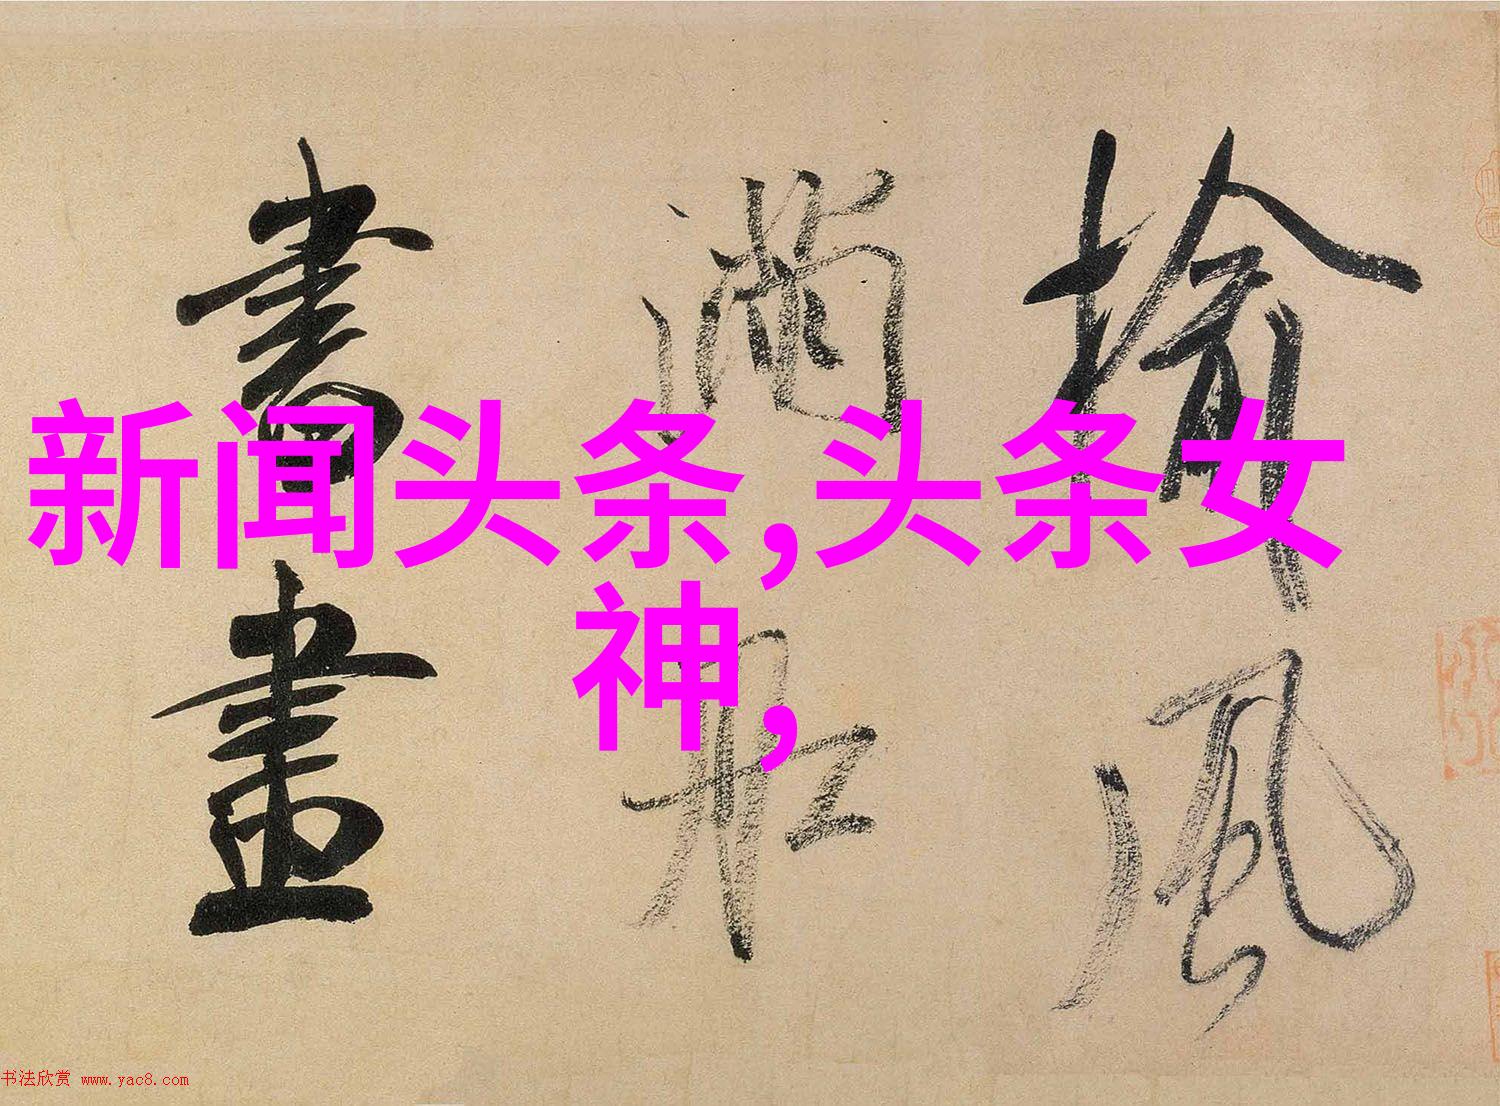 榆風
滿船
書畫
新闻头条,头条女
神,
书法欣赏 www.yac8.com